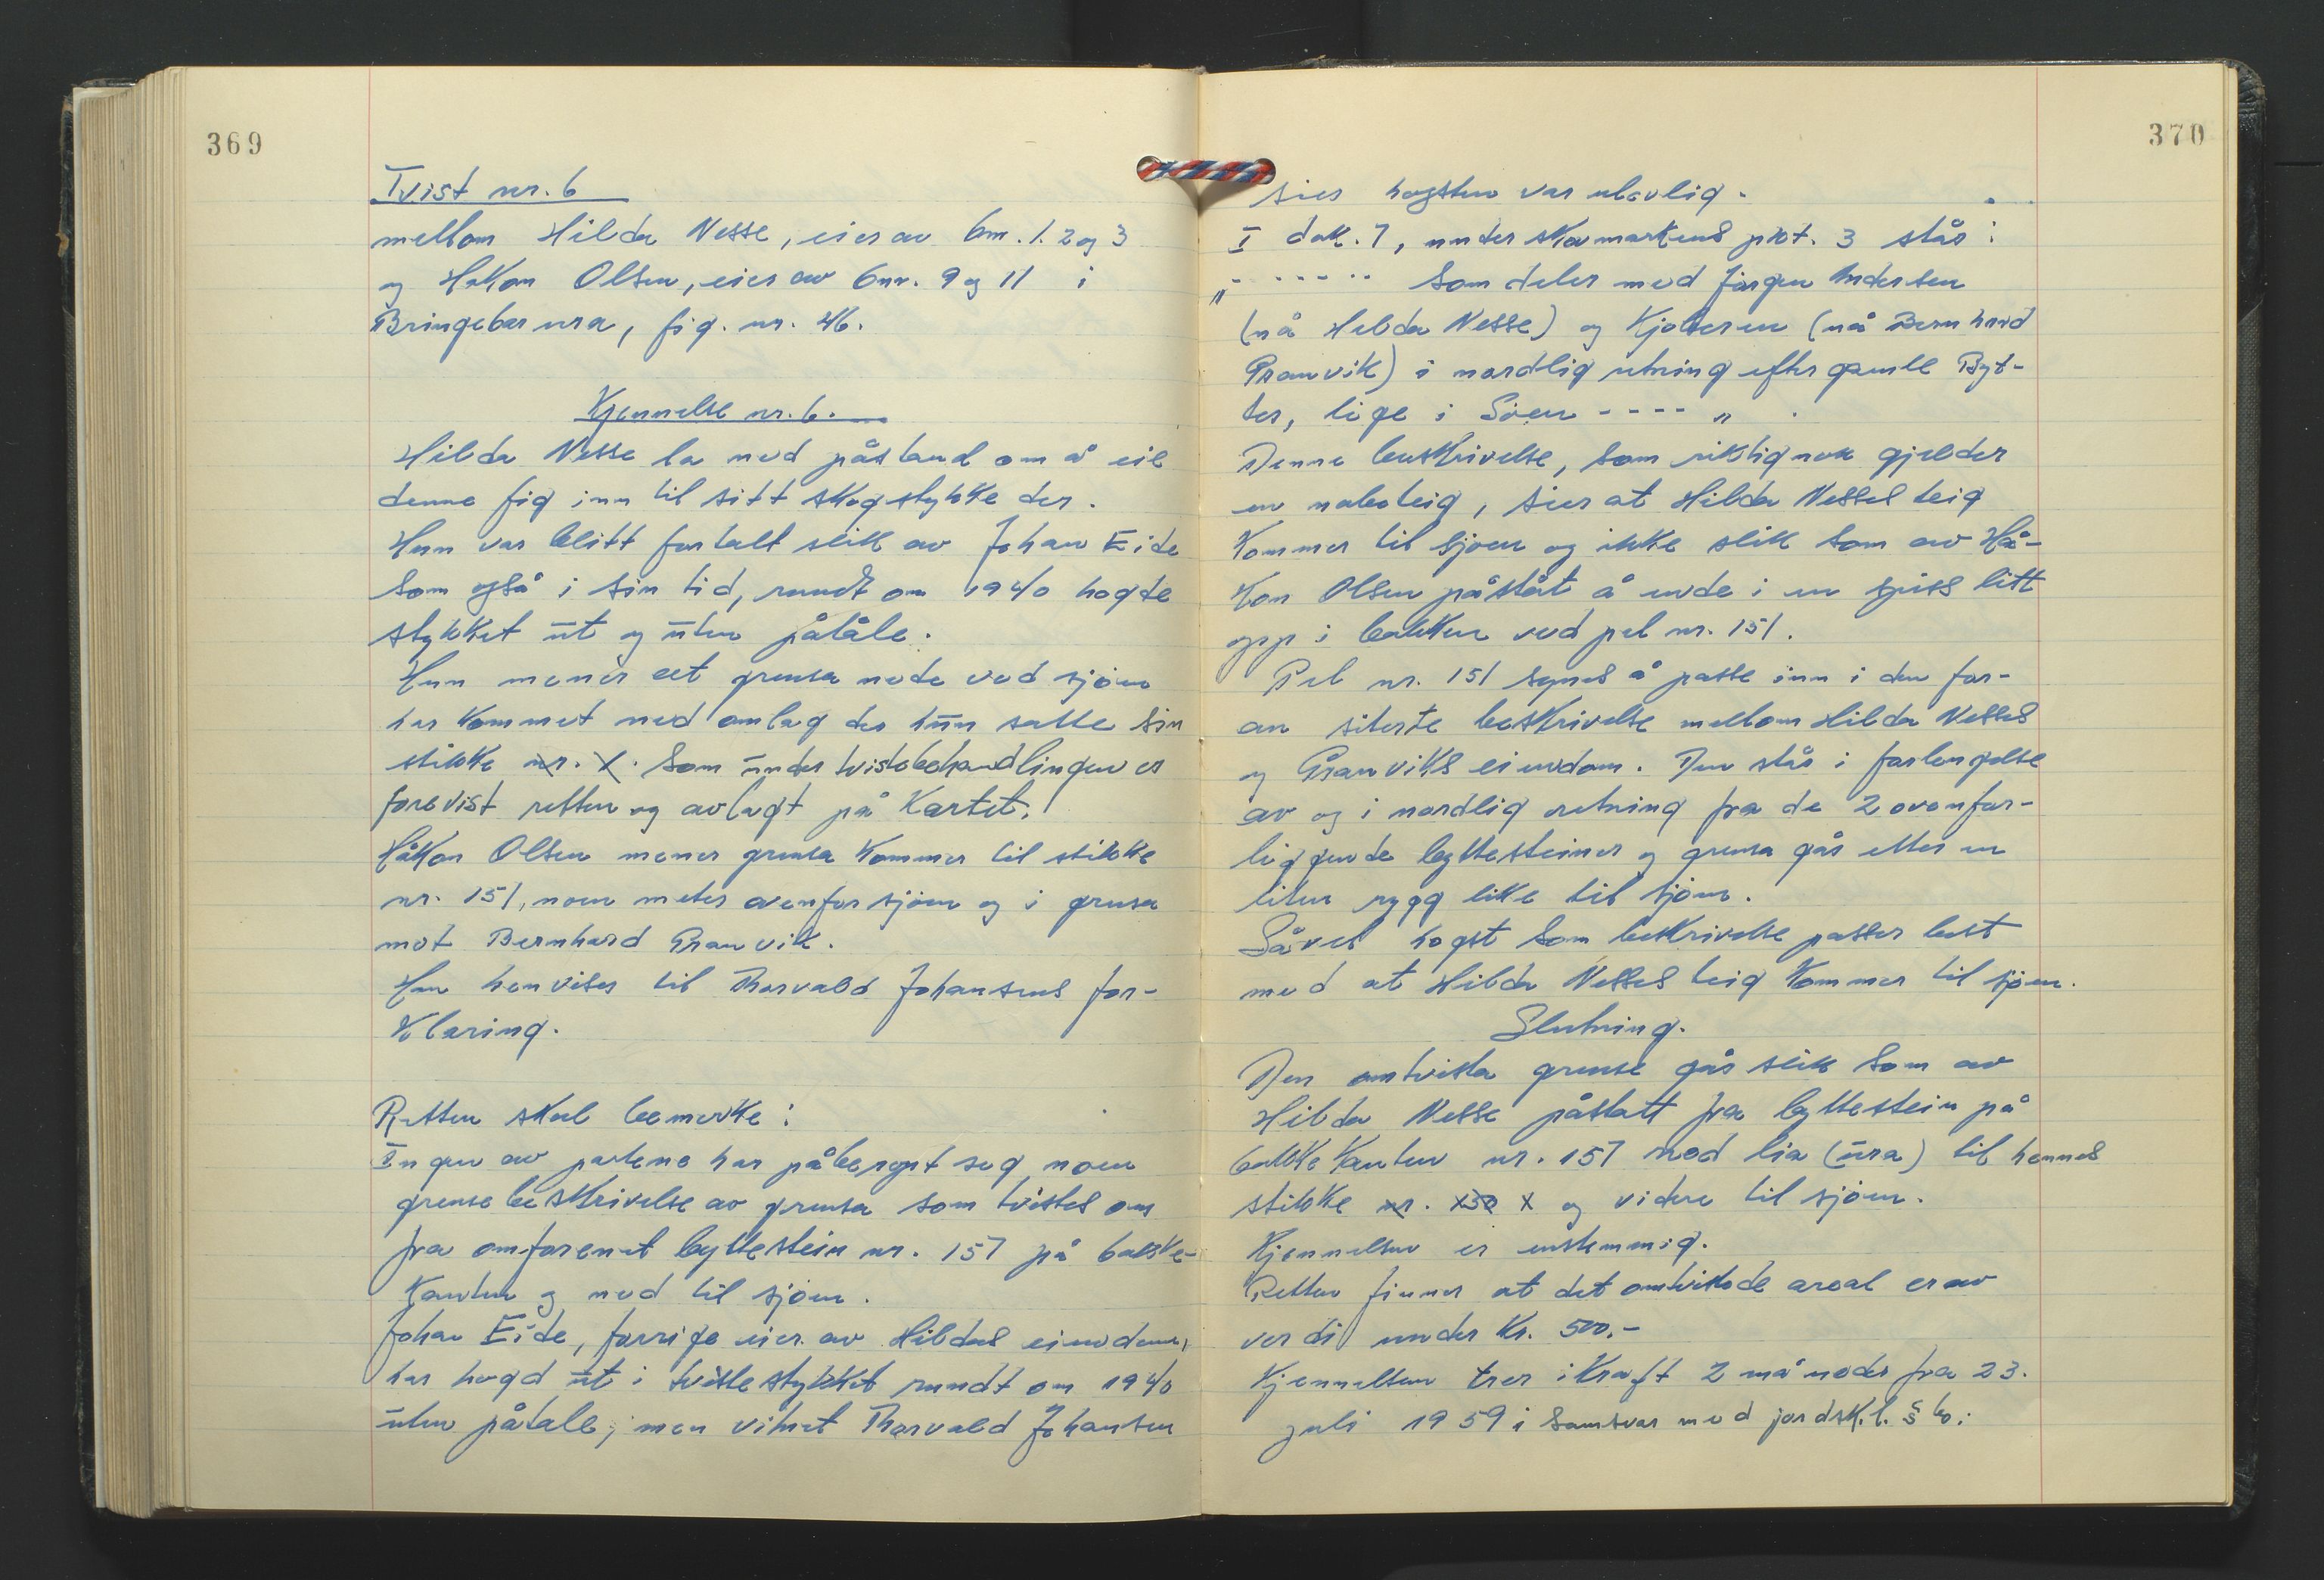 369
Tvist nr. 6
mellom Hilda Nesse, eier av bnr. 1. 2 og 3
og Håkon Olsen, eier av bnr. 9 og 11 i
Bringebærura, fig. nr. 46.
Kjennelse nr. 6.
Hilda Nesse la ned påstand om å eie
denne fig inn til sitt skogstykke der.
Hun var blitt fortalt slik av Johan Eide
som også i sin tid, rundt om 1940 hogde
stykket ut og uten påtale.
Hun mener at grensa nede ved sjøen
har kommet ned omlag der hun satte sin
stikke nr. X. som under tvistebehandlingen er
forevist retten og avlagt på kartet.
Håkon Olsen mener grensa kommer til stikke
nr. 151, noen meter ovenfor sjøen og i grensa
mot Bernhard Granvik.
Han henviser til Thorvald Johansens for-
klaring.
Retten skal bemerke:
Ingen av partene har påberopt seg noen
grensebeskrivelse av grensa som tvistes om
fra omforenet byttestein nr. 157 på bakke-
kanten og ned til sjøen.
Johan Eide, forrige eier av Hildas eiendom,
har hogd ut i tvistestykket rundt om 1940
uten påtale, men vitnet Thorvald Johansen
370
sier hogsten var ulovlig.
I dok. 7, under skovmarkens pkt. 3 står:
" - - - - - som deler med Jørgen Andersen
(nå Hilda Nesse) og Kjølseren (nå Bernhard
Granvik) i nordlig retning efter gamle Byt-
ter, lige i Søen - - - - "
Denne beskrivelse, som riktignok gjelder
en naboteig, sier at Hilda Nesses teig
kommer til sjøen og ikke slik som av Hå-
kon Olsen påstått å ende i en spiss litt
opp i bakken ved pel nr. 151.
Pel nr. 151 synes å passe inn i den for-
an siterte beskrivelse mellom Hilda Nesses
og Granviks eiendom. Den står i forlengelse
av og i nordlig retning fra de 2 ovenfor-
liggende byttesteiner og grensa går etter en
liten rygg like til sjøen.
Såvel hogst som beskrivelse passer best
med at Hilda Nesses teig kommer til sjøen.
Slutning.
Den omtvista grense går slik som av
Hilda Nesse påstått fra byttestein på
bakkekanten nr. 157 ned lia (ura) til hennes
stikke nr. X og videre til sjøen.
Kjennelsen er enstemmig.
Retten finner at det omtvistede areal er av
verdi under kr. 500.-
Kjennelsen trer i kraft 2 måneder fra 23.
juli 1959 i samsvar med jordsk.l. §